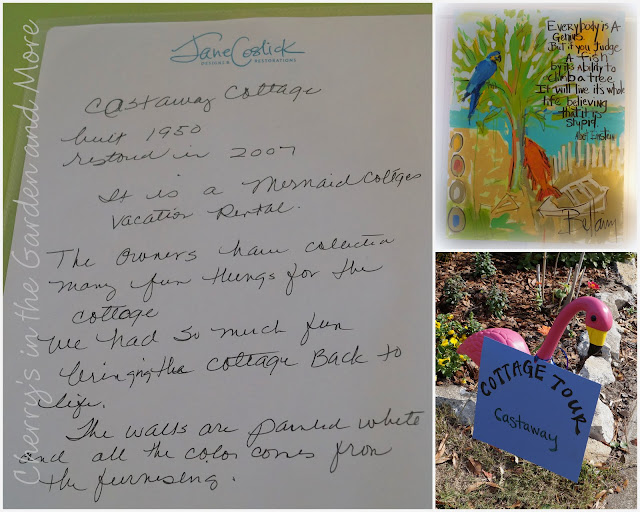 Jane Coslick
DESIGNS & RESTORATIONS
Castaway Cottage
built 1950
restored in 2007
It is a Mermaid Cottages
Vacation Rental.
The owners have collected
many fun things for the
cottage
We had so much fun
bringing the cottage Back to
life.
The walls are painted white
and all the color comes from
the furnishing.
Everybody is A
Genius.
But if you Judge
A fish
by its Ability to
climb a tree
It will live its whole
life believing
that it is
stupid.
Bellamy
COTTAGE TOUR
Castaway
Cherry's in the Garden and More